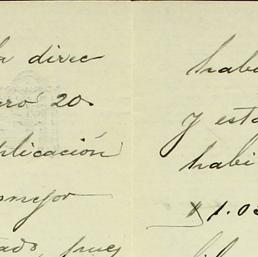 a direc
ero 20.
plicación
mejor
tado, pues
haba
y esta
habi
$1.03